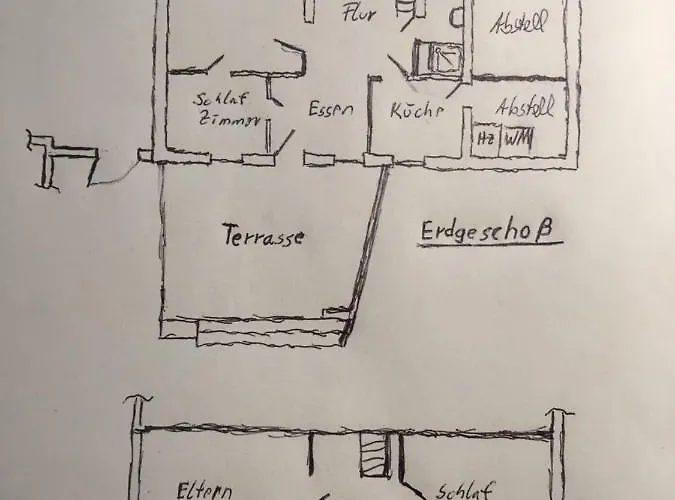 Flur
Abstell
Schlaf
Zimmer
Essen
Küche
Abstell
HZ
WM
Terrasse
Erdgeschoß
Eltern
Schlaf